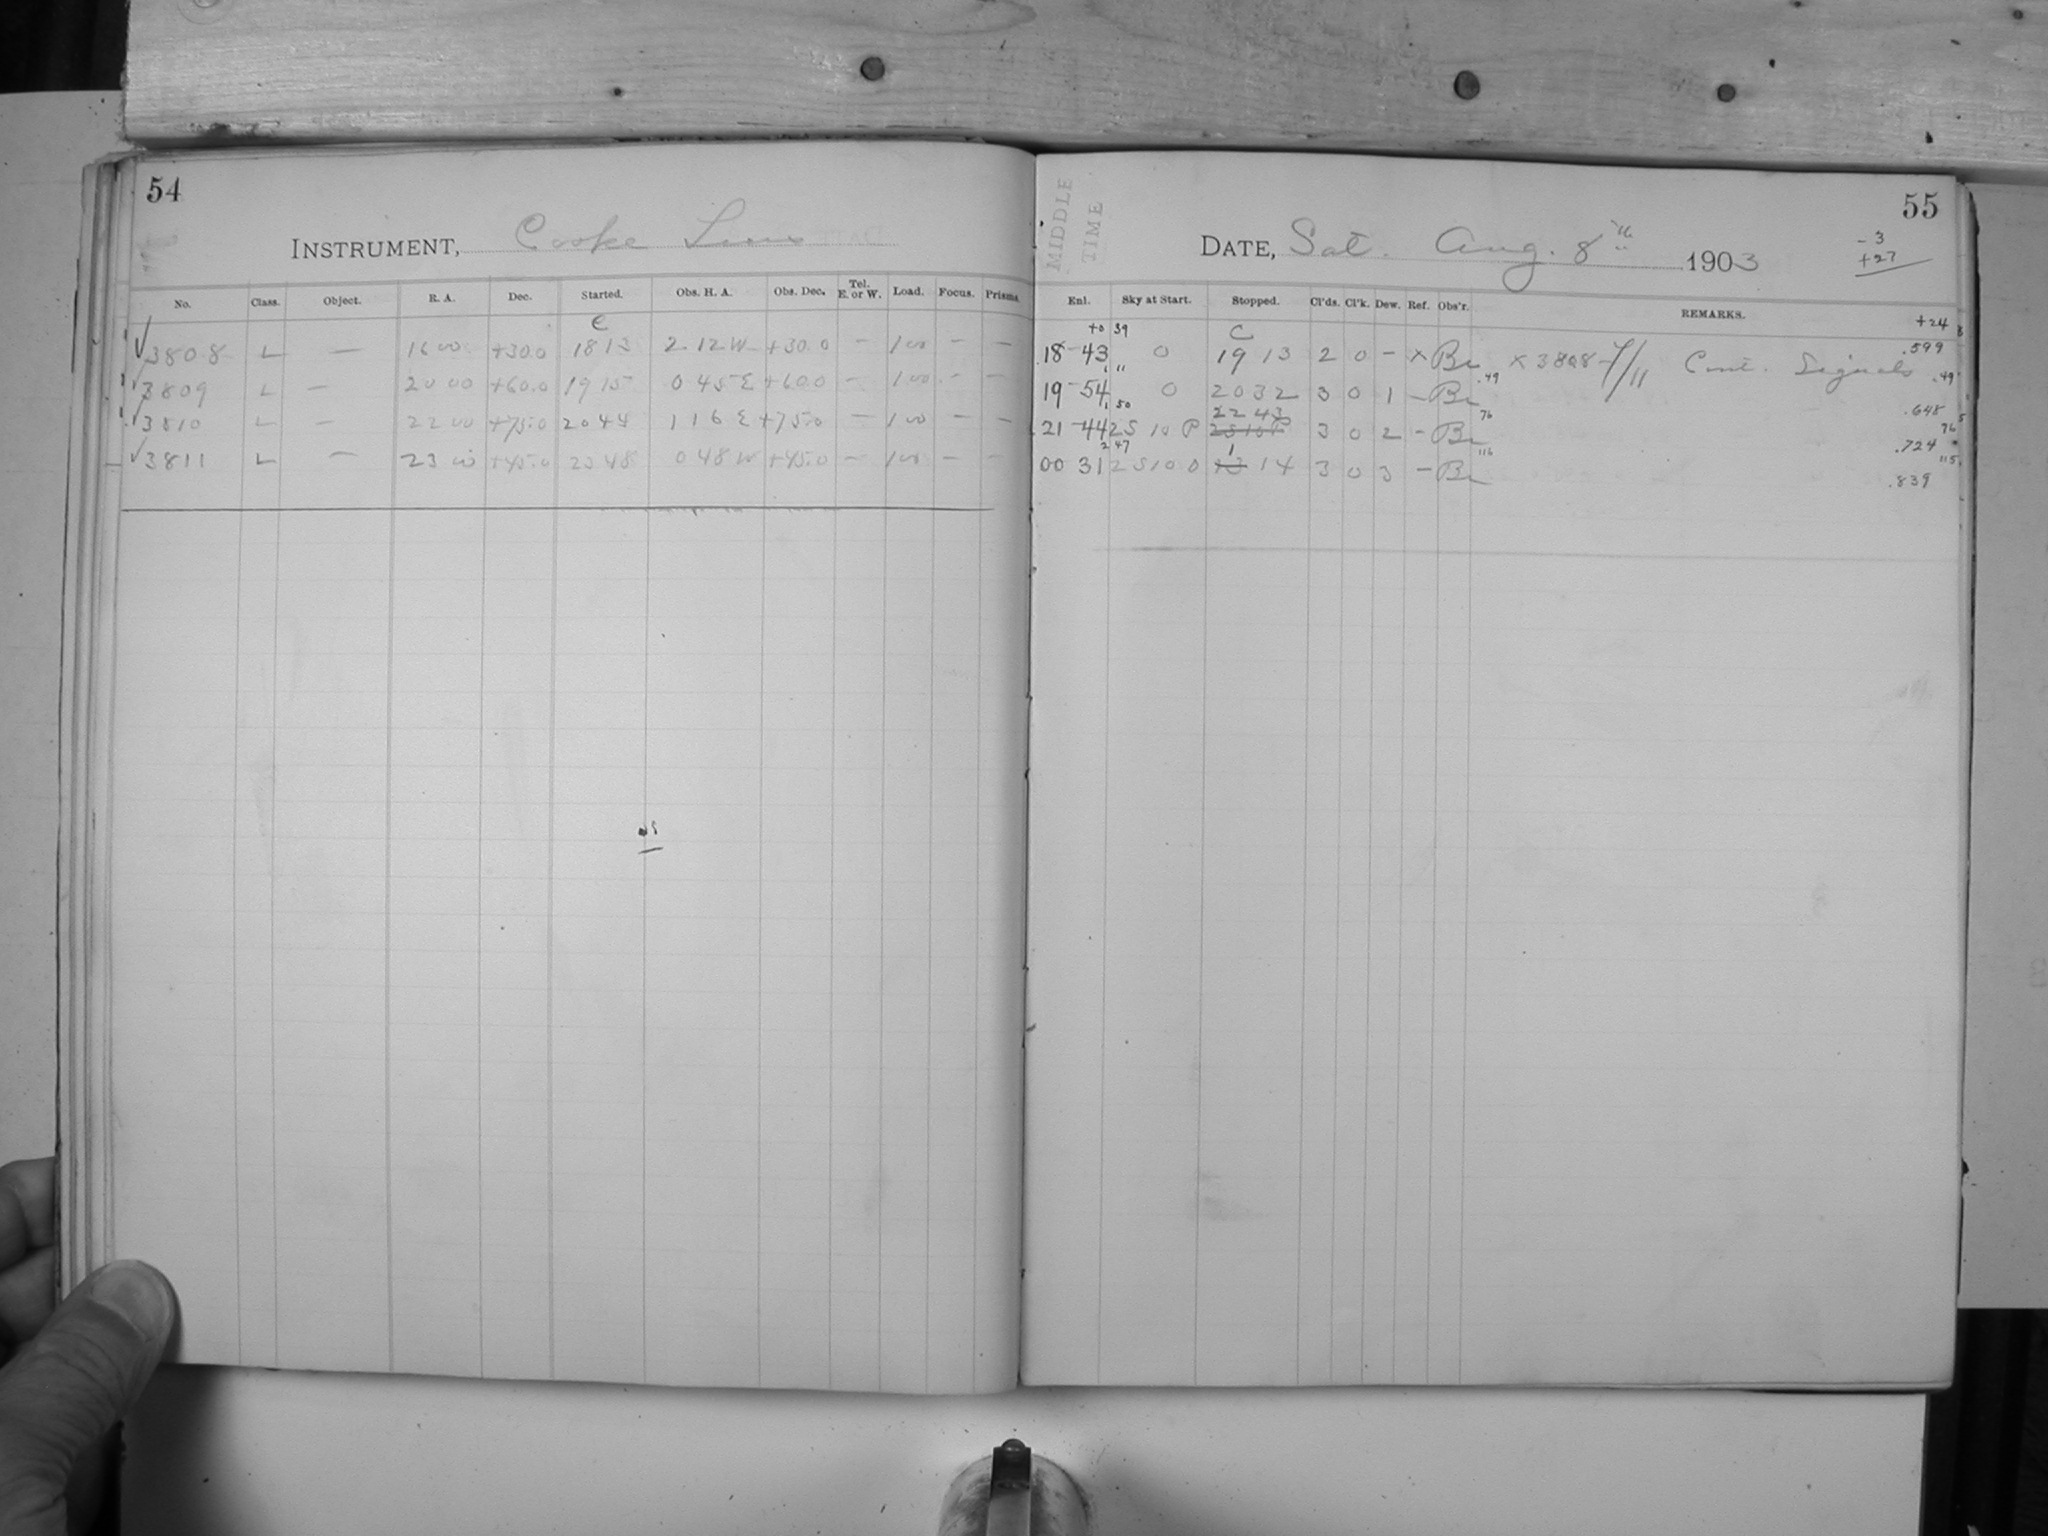 54
INSTRUMENT, Cooke Lens
No. Class. Object. R. A. Dec. Started. Obs. H. A. Obs. Dec. Tel. E. or W. Load. Focus. Prisms
c
√3808 L — 16 00 +30.0 18 13 2 12 W +30.0 — 100 — —
√3809 L — 20 00 +60.0 19 15 0 45 E +60.0 — 100 — —
√3810 L — 22 00 +75.0 20 44 1 16 E +75.0 — 100 — —
√3811 L — 23 00 +45.0 23 48 0 48 W +45.0 — 100 — —
MIDDLE
TIME
55
DATE, Sat. Aug. 8th 1903
-3
+27
Enl. Sky at Start. Stopped. Cl'ds. Cl'k. Dew. Ref. Obs'r. REMARKS.
+0 39 C +24
18-43 0 19 13 2 0 - x Br x 3808 Cont. Signals .599
1 11 .49 .49
19-54 0 20 32 3 0 1 - Br
1 50 22 43 76 .648
21-44 2S 10 P 3 0 2 - Br 76
2 47 1 116 .724
00 31 2S 10 0 14 3 0 3 - Br 115
.839